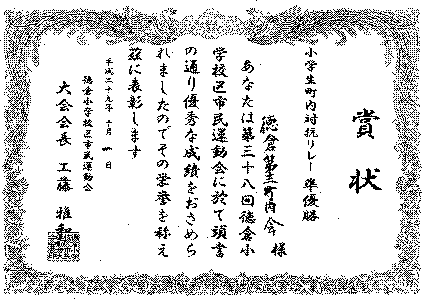 賞状
小学生町内対抗リレー 準優勝
徳倉第三町内会 様
あなたは第三十八回徳倉小
学校区市民運動会に於て頭書
の通り優秀な成績をおさめら
れましたのでその栄誉を称え
茲に表彰します
平成二十九年十月 日
徳倉小学校区市民運動会
大会会長 工藤 雅